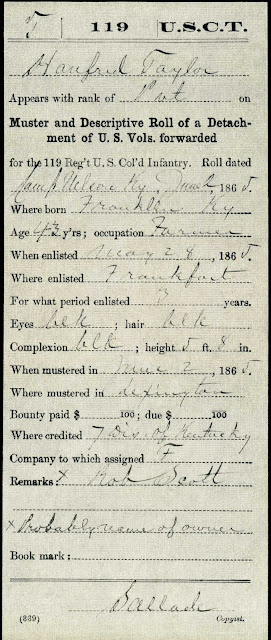 T | 119 | U.S.C.T.
Hanford Taylor
Appears with rank of Pvt on
Muster and Descriptive Roll of a Detach-
ment of U. S. Vols. forwarded
for the 119 Reg't U. S. Col'd Infantry. Roll dated
Camp Nelson Ky, , 1865.
Where born Franklin Ky
Age 43 y'rs; occupation Farmer
When enlisted May 28, 1865.
Where enlisted Frankfort
For what period enlisted 3 years.
Eyes blk; hair blk
Complexion blk; height 5 ft. 8 in.
When mustered in June 2, 1865.
Where mustered in Lexington
Bounty paid $ 100; due $ 100
Where credited 7 Dis. of Kentucky
Company to which assigned F
Remarks: x Rob Scott
x Probably name of owner
Book mark:
Ballack
(339) Copyist.